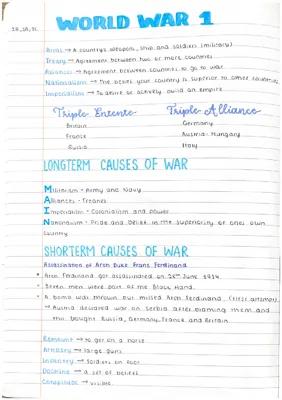 WORLD WAR 1
Arms → A countrys weapons, ship and soldiers (military)
Treaty → Agreement between two or more countries
Alliances → Agreement between countries to go to war
Nationalism → The belief your country is superior to other countries
Imperialism → To desire or actively build an empire
Triple Entente
Triple Alliance
Britain
Germany
France
Austria-Hungary
Russia
Italy
LONGTERM CAUSES OF WAR
Militarism - Army and Navy
Alliances - Treaties
Imperialism - Colonialism and power
Nationalism - Pride and belief in the superiority of ones own
country
SHORTERM CAUSES OF WAR
Assassination of Arch Duke Franz Ferdinand
Arch Ferdinand got assassinated on 28th June 1914.
Seven men were part of the Black Hand.
A bomb was thrown but missed Arch Ferdinand. (First attempt)
→ Austria declared war on Serbia after blaming them and
this bought Russia, Germany, France and Britain.
→ to get on a horse
Artillery → large guns
Infantry → Soldiers on foot
Doctrine → a set of beliefs
→ visible.